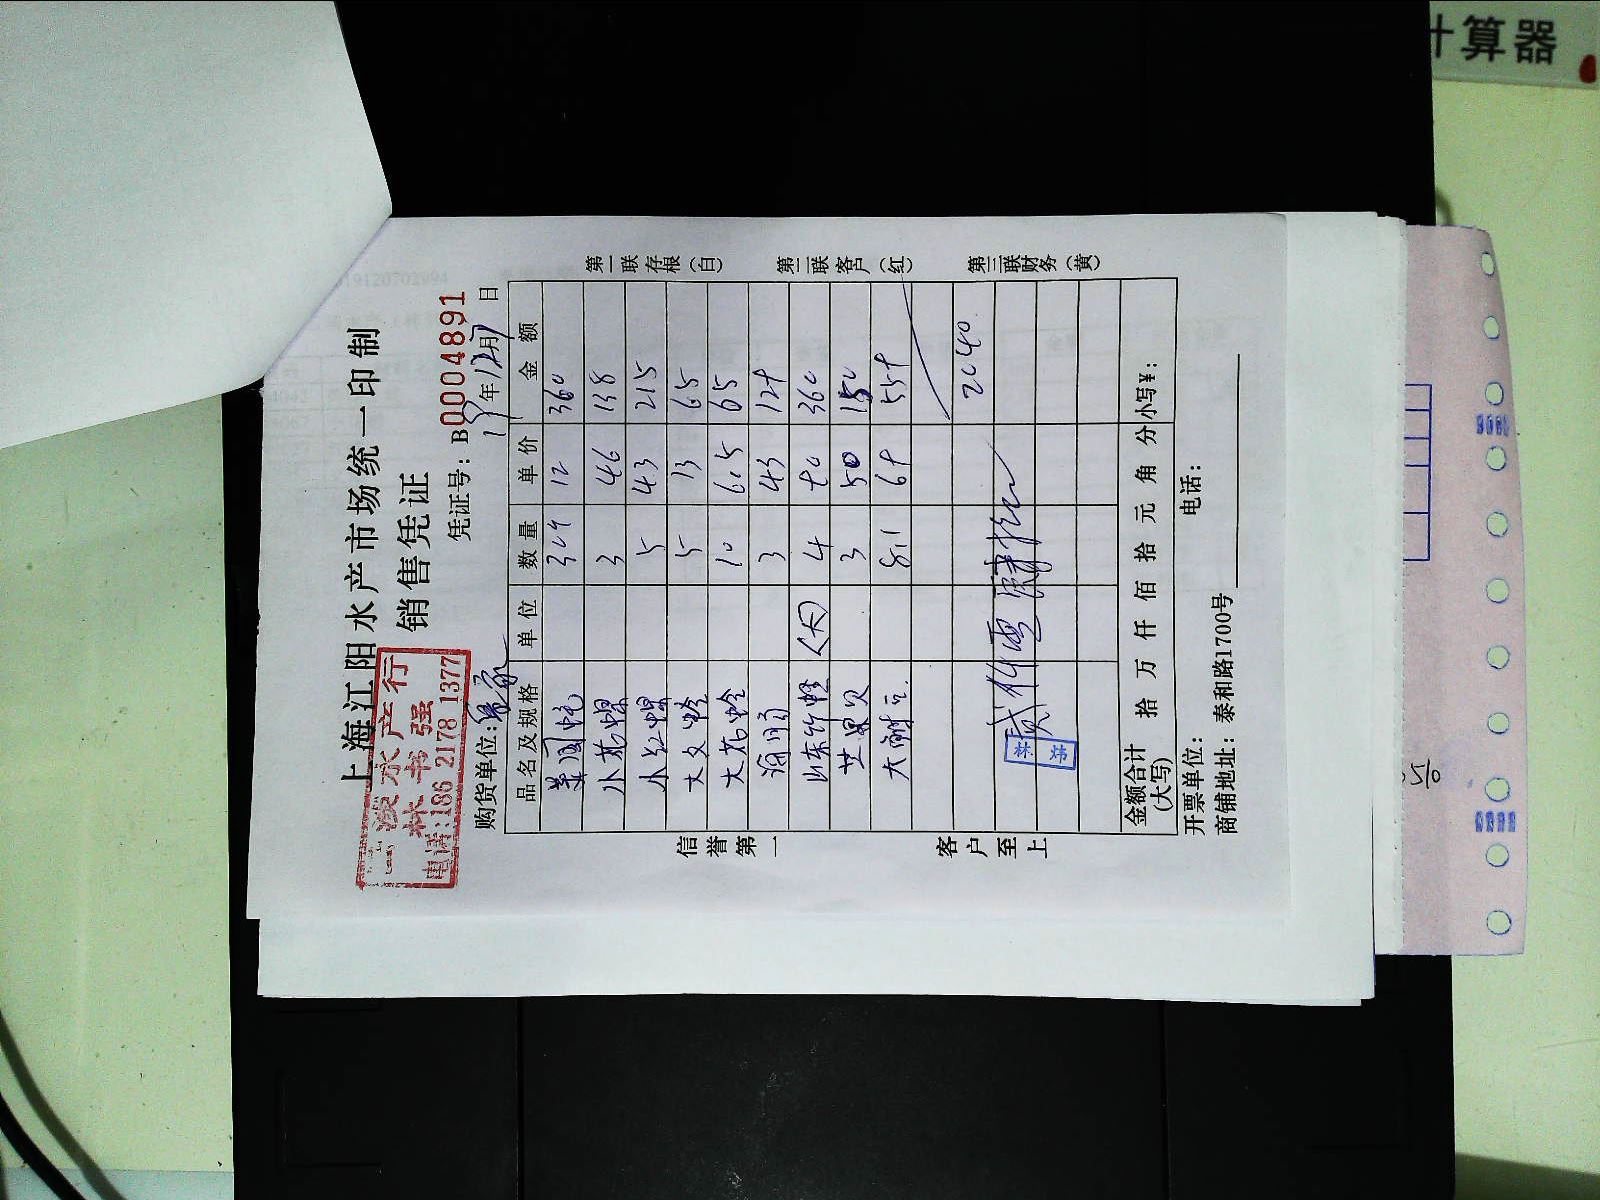 计算器
上海江阳水产市场统一印制
销售凭证
水产行
林书强
电话:186 2178 1377
凭证号: B0004891
购货单位:
19年12月7日
品名及规格 单位 数量 单价 金额
美国蚝 12 360
小花螺 3 46 138
小红螺 5 43 215
大文蛤 5 13 65
大花蛤 10 6.5 65
3 43 129
山东竹蛏 4 360
芒果贝 3 50 150
8.1
2040
林强
金额合计(大写) 拾 万 仟 佰 拾 元 角 分 小写¥:
开票单位: 电话:
商铺地址: 泰和路1700号
信誉第一
客户至上
第一联存根(白)
第二联客户(红)
第三联财务(黄)